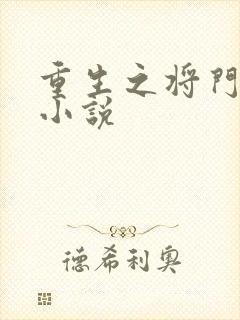 重生之将門
小説
德希利奥